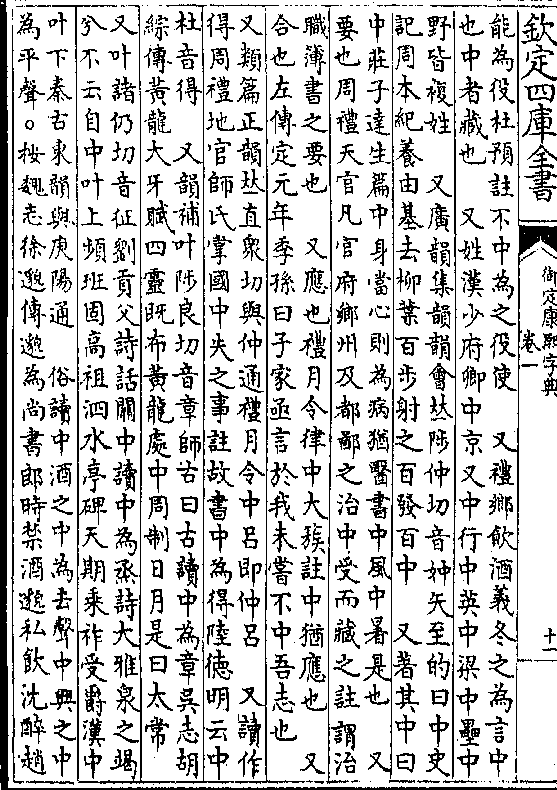 欽定四庫全書
御定康熙字典
卷一
十一
能為役杜預註不中為之役使　又禮鄉飲酒義冬之為言中
也中者藏也　又姓漢少府卿中京又中行中英中梁中壘中
野皆複姓　又廣韻集韻韻會𠀤陟仲切音妕矢至的曰中史
記周本紀養由基去柳葉百步射之百發百中　又著其中曰
中莊子達生篇中身當心則為病猶醫書中風中暑是也　又
要也周禮天官凡官府鄉州及都鄙之治中受而藏之註謂治
職簿書之要也　又應也禮月令律中大蔟註中猶應也　又
合也左傳定元年季孫曰子家亟言於我未嘗不中吾志也
又類篇正韻𠀤直衆切與仲通禮月令中呂即仲呂　又讀作
得周禮地官師氏掌國中失之事註故書中為得陸德明云中
杜音得　又韻補叶陟良切音章師古曰古讀中為章吳志胡
綜傳黃龍大牙賦四靈既布黃龍處中周制日月是曰太常
又叶諸仍切音征劉貢父詩話關中讀中為烝詩大雅泉之竭
兮不云自中叶上頻班固高祖泗水亭碑天期乘祚受爵漢中
叶下秦古東韻與庚陽通　俗讀中酒之中為去聲中興之中
為平聲○桉魏志徐邈傳邈為尚書郎時禁酒邈私飲沈醉趙